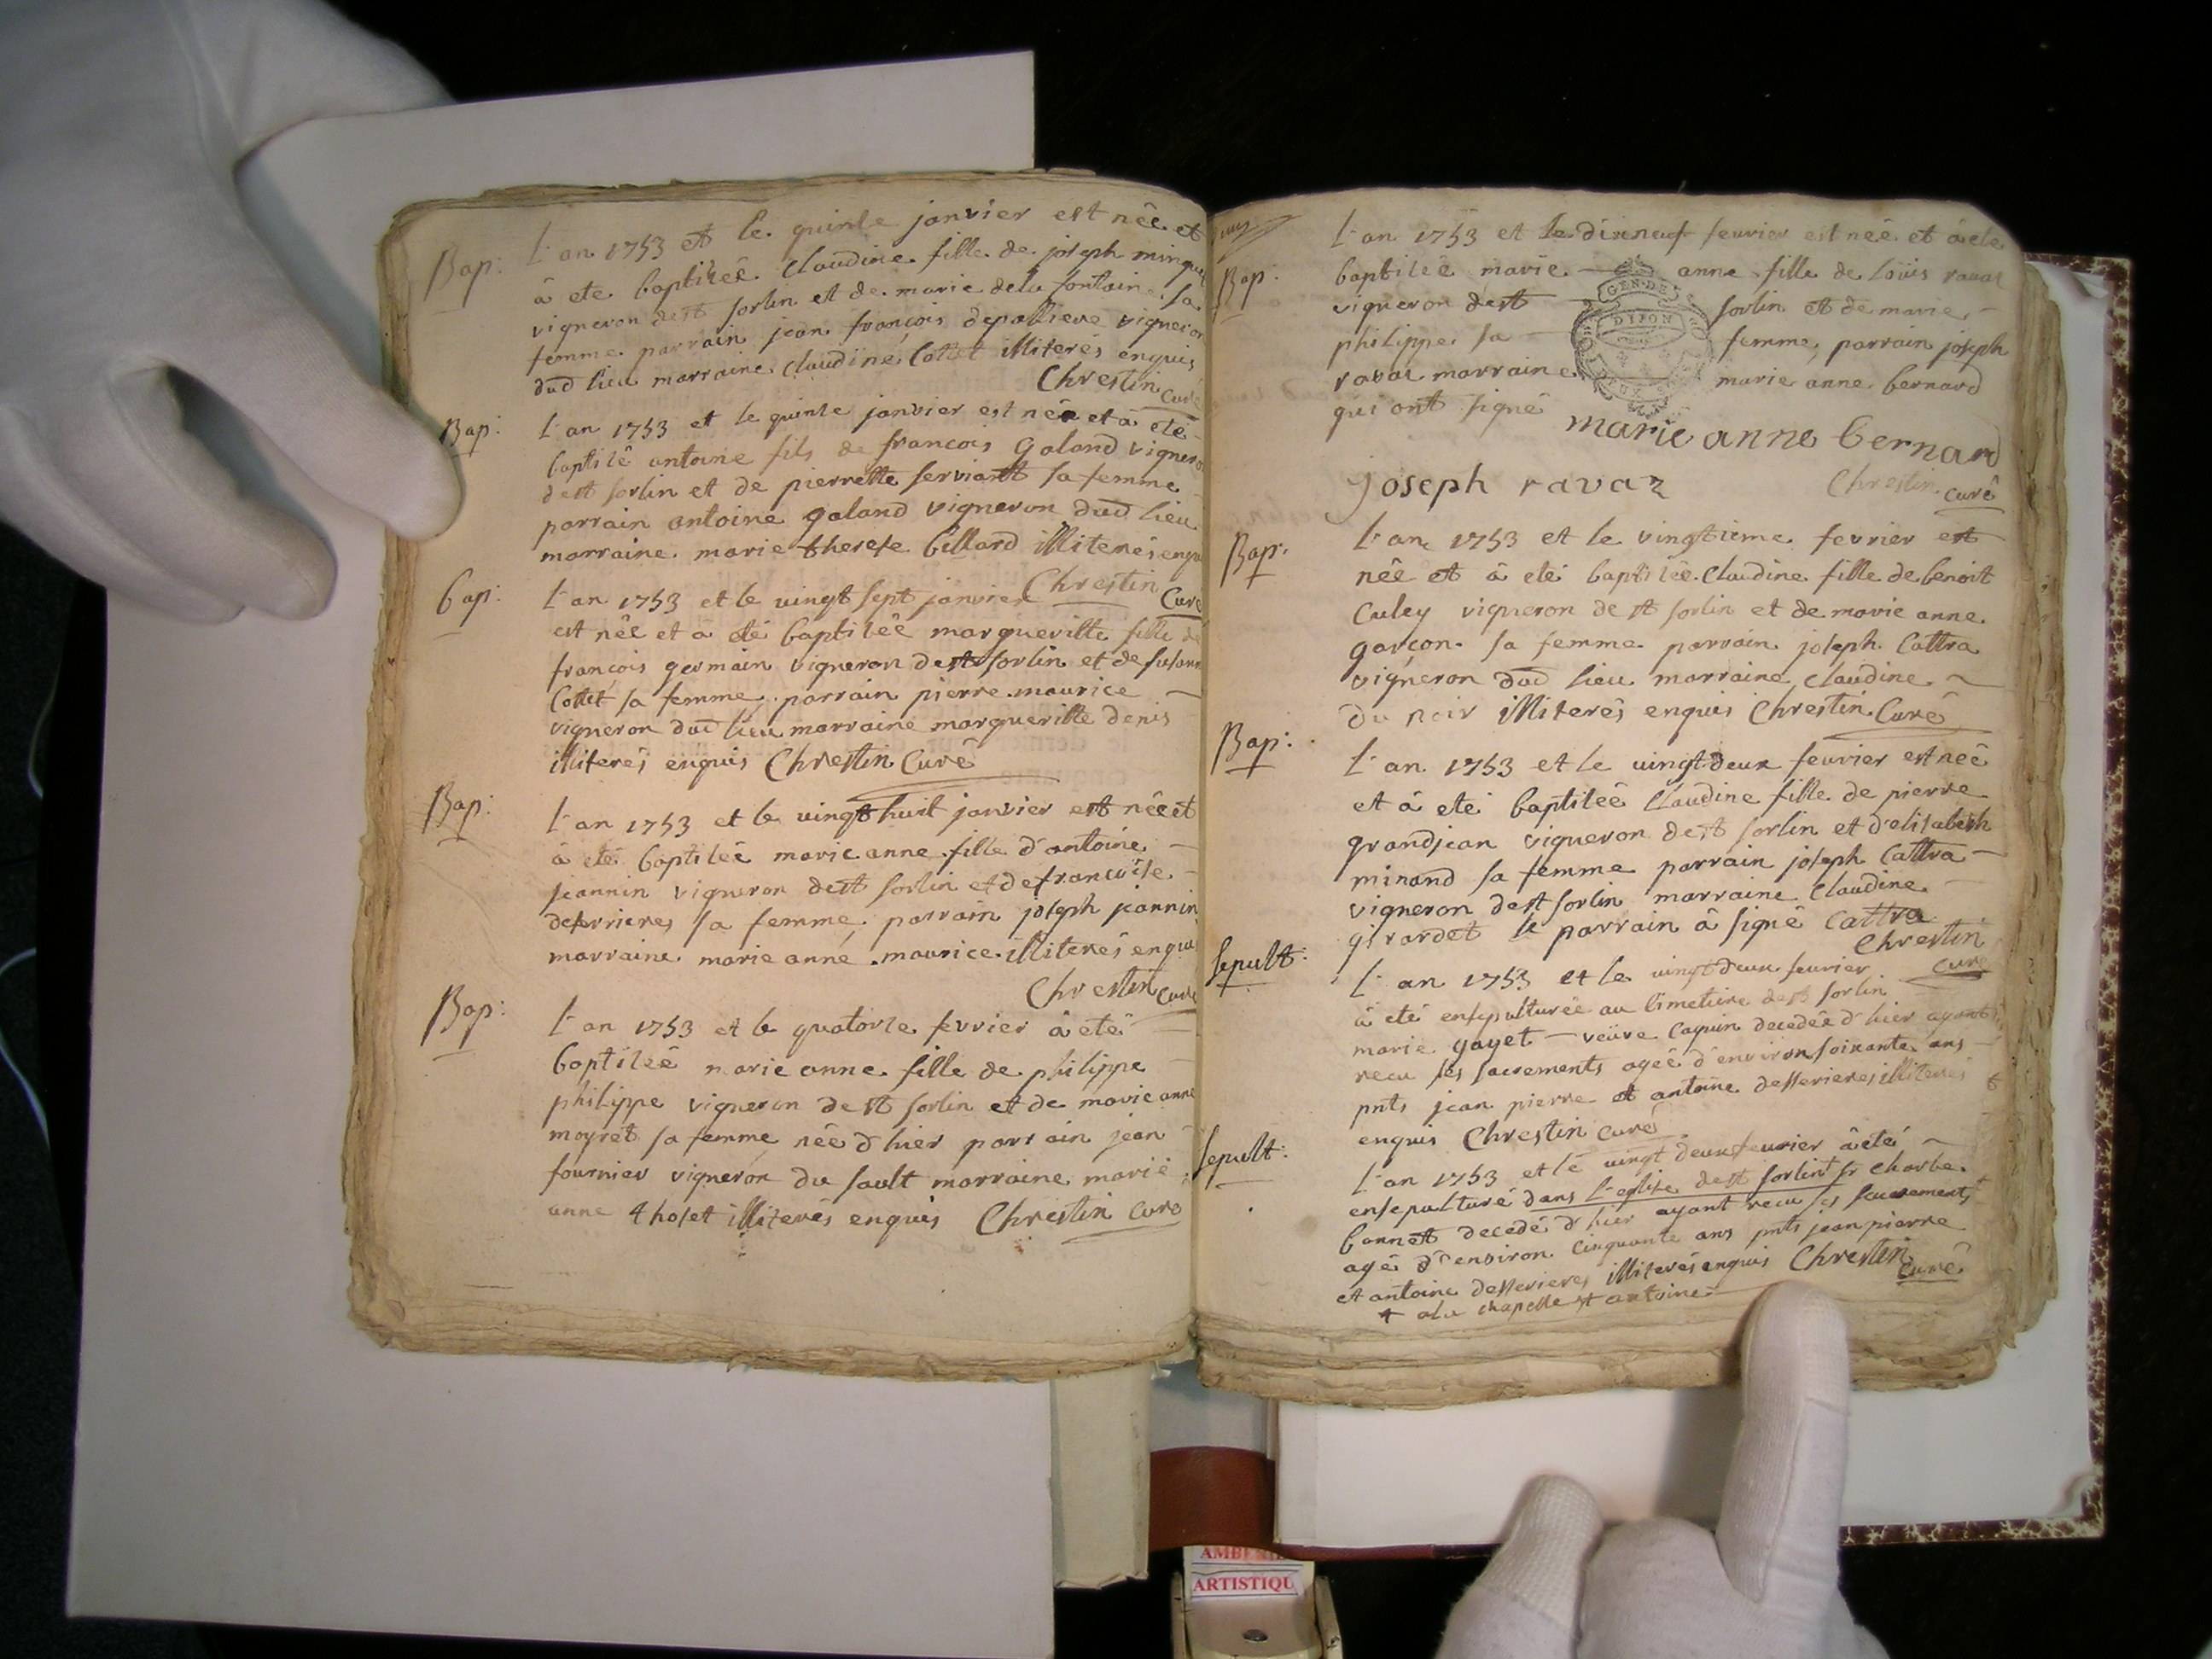 Bap: L'an 1753 et le quinze janvier est née et
à ete baptizeé Claudine fille de joseph minguet
vigneron de st sorlin et de marie dela fontaine sa
femme parrain jean françois depalliere vigneron
dud lieu marraine Claudine Cottet illiterés enquis
Chrestin Curé
Bap: L'an 1753 et le quinze janvier est née et à eté
baptizé antoine fils de francois Galand vigneron
de st sorlin et de pierrette serviant sa femme
parrain antoine galand vigneron dud lieu
marraine marie therese billard illiterés enquis
Chrestin Curé
bap: L'an 1753 et le vingt sept janvier
est née et à eté baptizeé margueritte fille de
françois germain vigneron de st sorlin et de susanne
Cottet sa femme parrain pierre maurice
vigneron dud lieu marraine margueritte denis
illiterés enquis Chrestin Curé
Bap: L'an 1753 et le vingt huit janvier est née et
à eté baptizeé marie anne fille d'antoine
jeannin vigneron de st sorlin et de françoise
deserrieres sa femme parrain joseph jeannin
marraine marie anne maurice illiterés enquis
Chrestin Curé
Bap: L'an 1753 et le quatorze fevrier à eté
baptizeé marie anne fille de philippe
philippe vigneron de st sorlin et de marie anne
moyret sa femme née d'hier parrain jean
fournier vigneron du sault marraine marie
anne thoset illiterés enquis Chrestin Curé
Bap: L'an 1753 et le dixneuf feuvrier est neé et à ete
baptizeé marie anne fille de Loüis ravaz
vigneron de st sorlin et de marie
philippe sa femme, parrain joseph
ravaz marraine marie anne bernard
qui ont signé
GEN·DE
DIJON
marie anne bernard
joseph ravaz
Chrestin curé
Bap: L'an 1753 et le vingtieme fevrier est
née et à eté baptizée Claudine fille de benoit
Culey vigneron de st sorlin et de marie anne
garçon sa femme parrain joseph Cattra
vigneron dud lieu marraine Claudine
du noir illiterés enquis Chrestin Curé
Bap: L'an 1753 et le vingtdeux feuvrier est neé
et à eté baptizeé Claudine fille de pierre
grandjean vigneron de st sorlin et d'elisabeth
minand sa femme parrain joseph Cattra
vigneron de st sorlin marraine Claudine
girardet le parrain à signé Cattra
Chrestin Curé
sepult: L'an 1753 et le vingtdeux feuvrier
à eté ensepulturée au Cimetiere de st sorlin
marie gayet veüve Capuin decedée d'hier ayant
recu ses sacrements ageé d'environ soixante ans
pnts jean pierre et antoine desserieres illiterés
enquis Chrestin Curé
sepult: L'an 1753 et le vingt deux feuvrier à eté
ensepulturé dans l'eglise de st sorlin + sr Charle
bonnet decedé d'hier ayant recu ses sacrements
agé d'environ Cinquante ans pnts jean pierre
et antoine desserieres illiterés enquis Chrestin Curé
+ a la chapelle st antoine
AMBERIE
ARTISTIQU